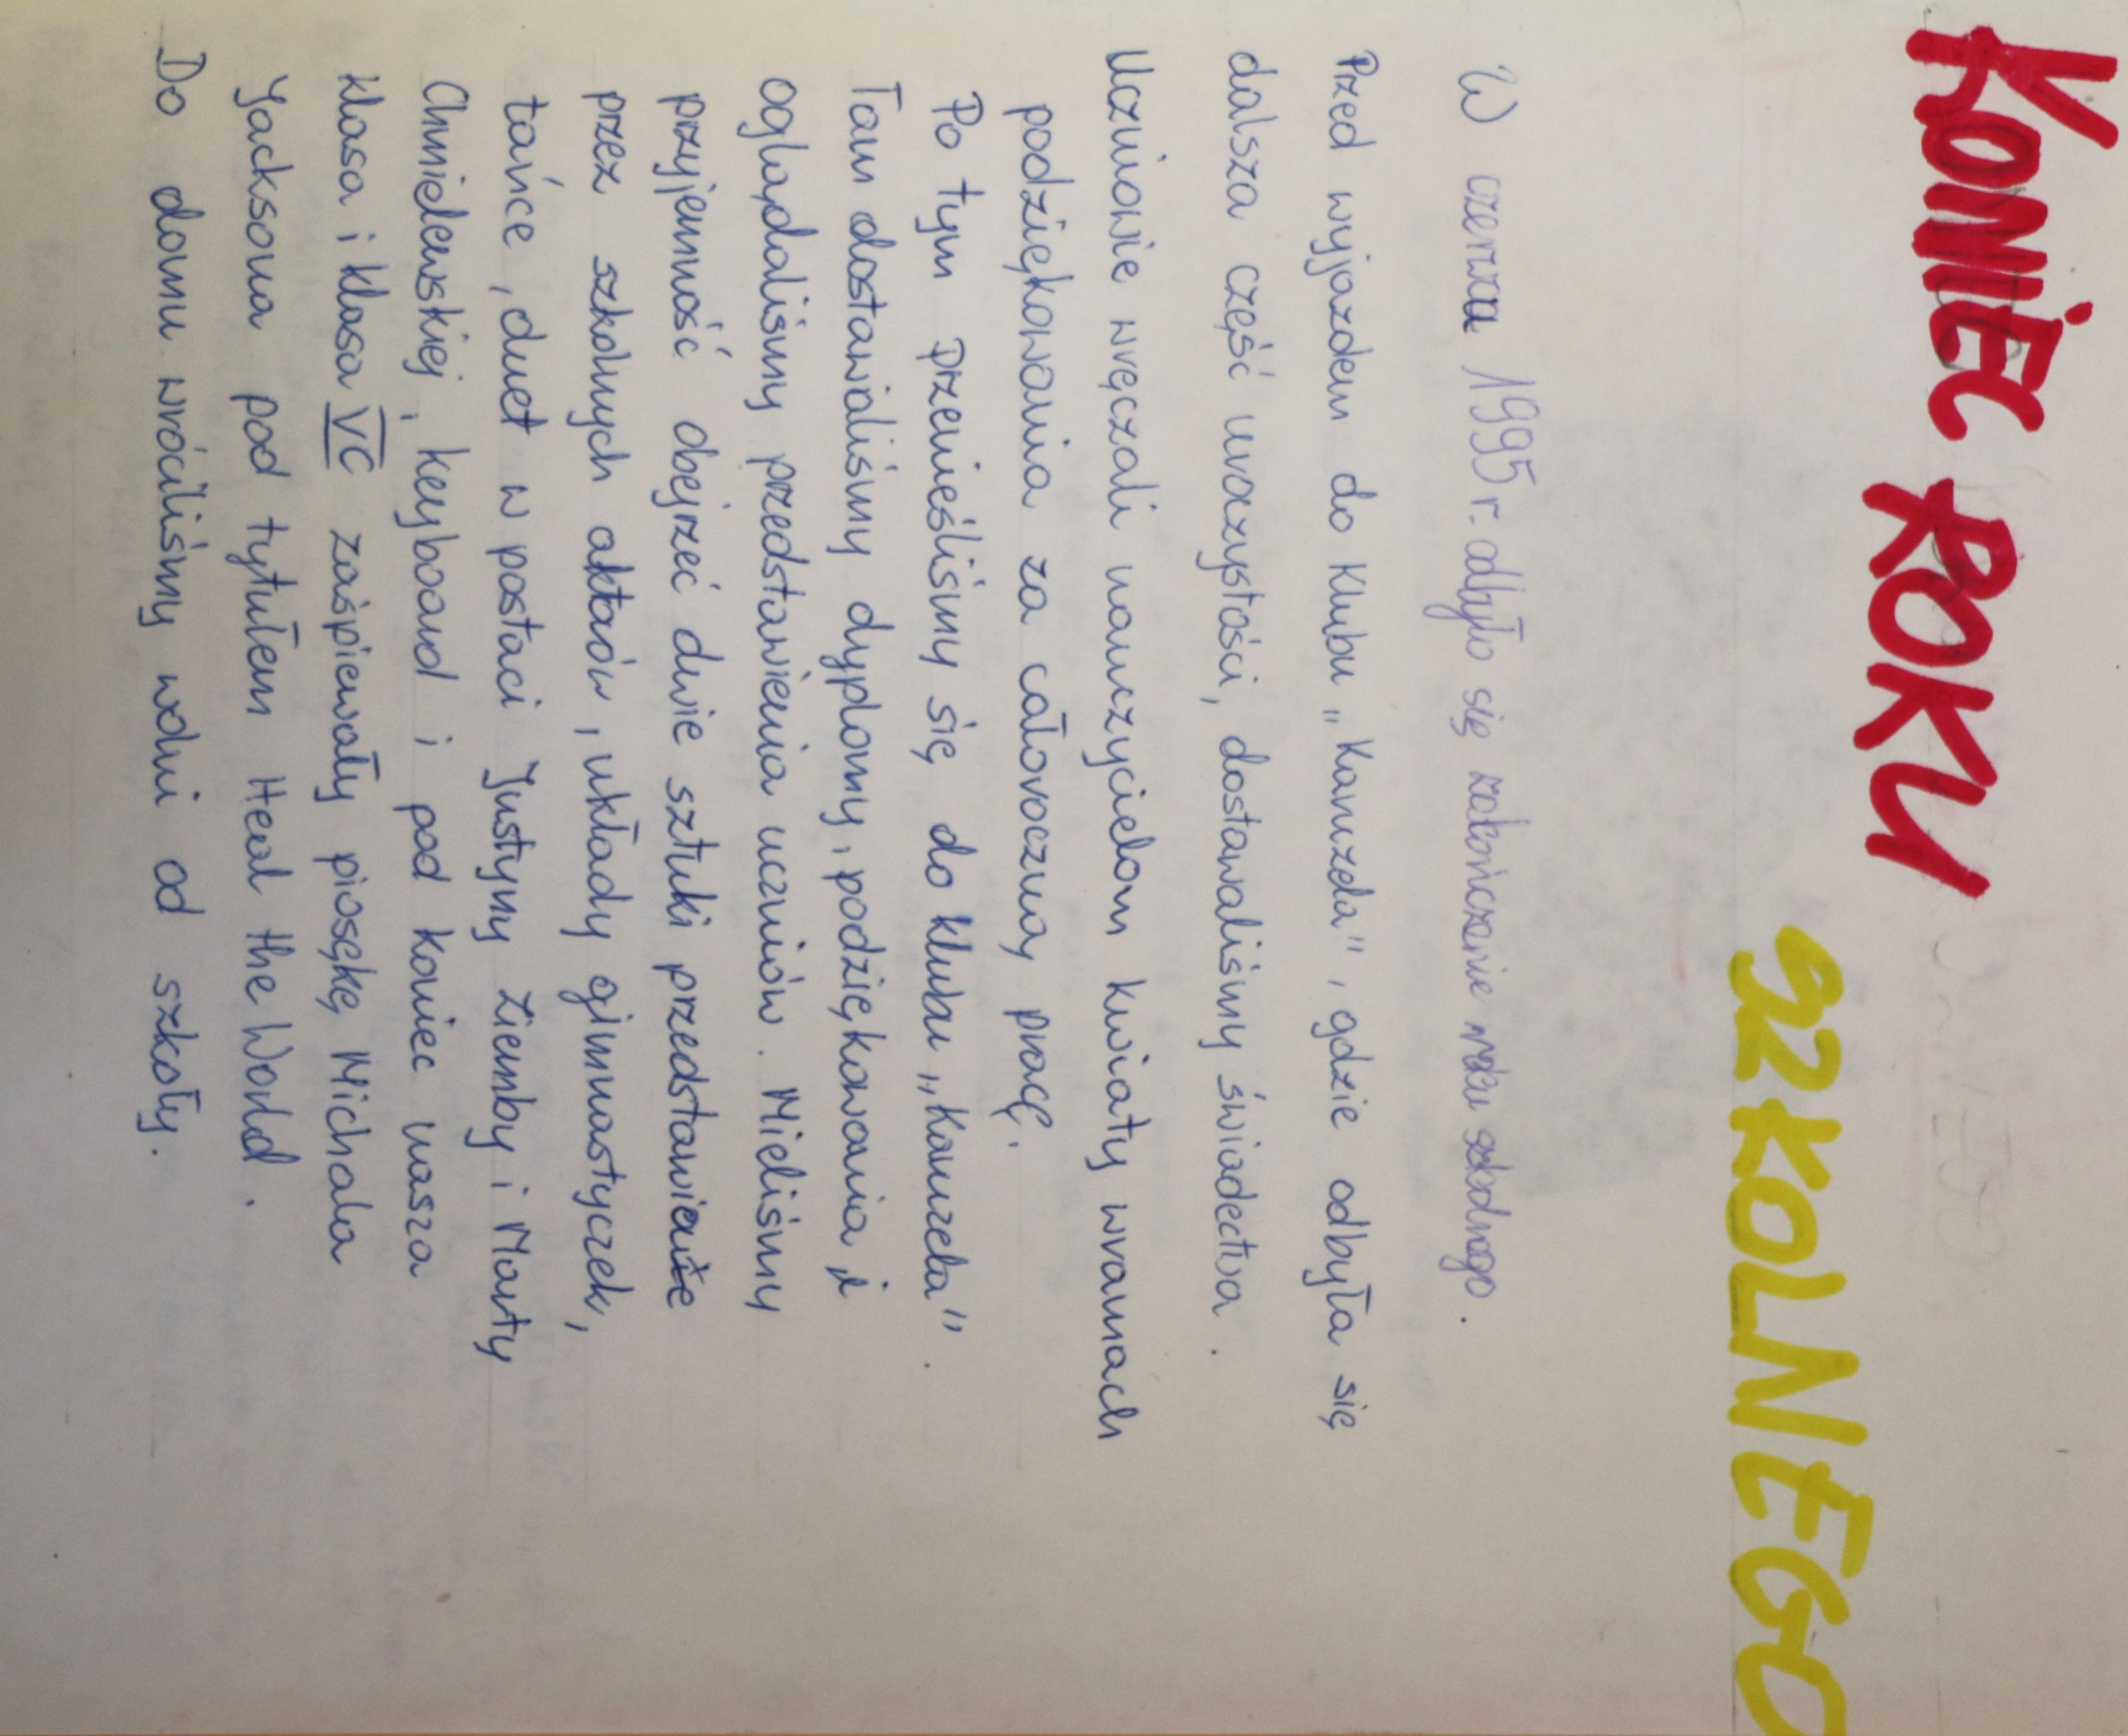 KONIEC ROKU
SZKOLNEGO
W czerwcu 1995 r. odbyło się zakończenie roku szkolnego.
Przed wyjazdem do Klubu „Karuzela”, gdzie odbyła się
dalsza część uroczystości, dostawaliśmy świadectwa.
Uczniowie wręczali nauczycielom kwiaty wramach
podziękowania za całoroczną pracę.
Po tym przenieśliśmy się do klubu „Karuzela”.
Tam dostawialiśmy dyplomy, podziękowania i
oglądaliśmy przedstawienia uczniów. Mieliśmy
przyjemność obejrzeć dwie sztuki przedstawione
przez szkolnych aktorów, układy gimnastyczek,
tańce, duet w postaci Justyny Ziemby i Marty
Chmielewskiej, keyboard i pod koniec nasza
klasa i klasa VC zaśpiewały piosękę Michala
Jacksona pod tytułem Heal the World.
Do domu wróciliśmy wolni od szkoły.